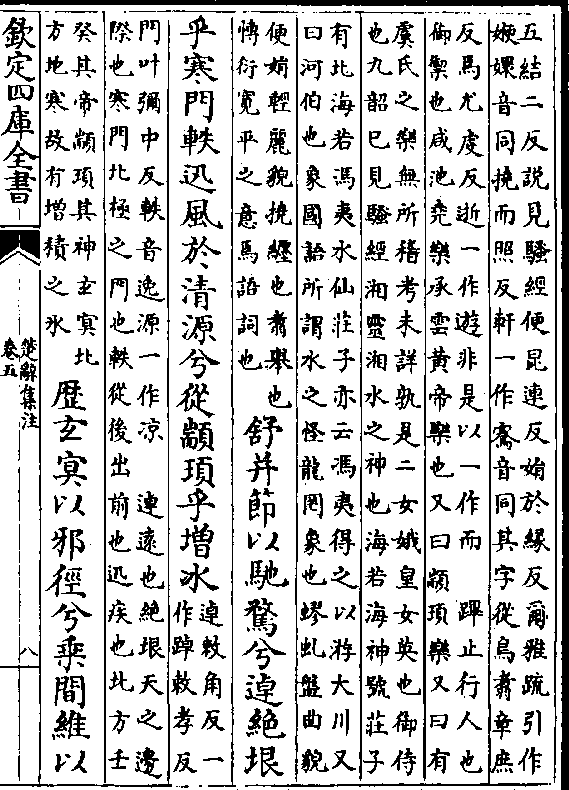 五結二反説見騷經便昆連反娟於緣反爾雅疏引作
㛹嬛音同撓而照反軒一作騫音同其字從鳥翥章庶
反馬尤虔反逝一作遊非是以一作而 蹕止行人也
御禦也咸池堯樂承雲黄帝樂也又曰顓頊樂又曰有
虞氏之樂無所稽考未詳孰是二女娥皇女英也御侍
也九韶已見騷經湘靈湘水之神也海若海神號莊子
有北海若馮夷水仙莊子亦云馮夷得之以游大川又
曰河伯也象國語所謂水之怪龍罔象也蟉虬盤曲貌
便娟輕麗貌撓纏也翥舉也
慱衍寛平之意馬語詞也
舒并節以馳騖兮逴絶垠
乎寒門軼迅風於清源兮從顓頊乎増冰
逴敕角反一
作踔敕孝反
門叶彌巾反軼音逸源一作凉 逴遠也絶垠天之邊
際也寒門北極之門也軼從後出前也迅疾也北方壬
癸其帝顓頊其神玄冥北
方地寒故有增積之氷
歴玄冥以邪徑兮乘間維以
欽定四庫全書
楚辭集注
卷五
八